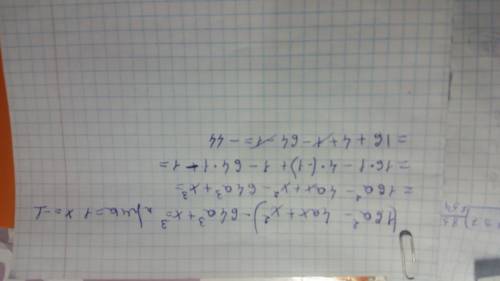 (16a² - 4ax + x²) - 64a³ + x³ = при a = 1 x = -1
= 16a² - 4ax + x² - 64a³ + x³ =
= 16·1 - 4·(-1) + 1 - 64·1 - 1 =
= 16 + 4 + 1 - 64 - 1 = -44